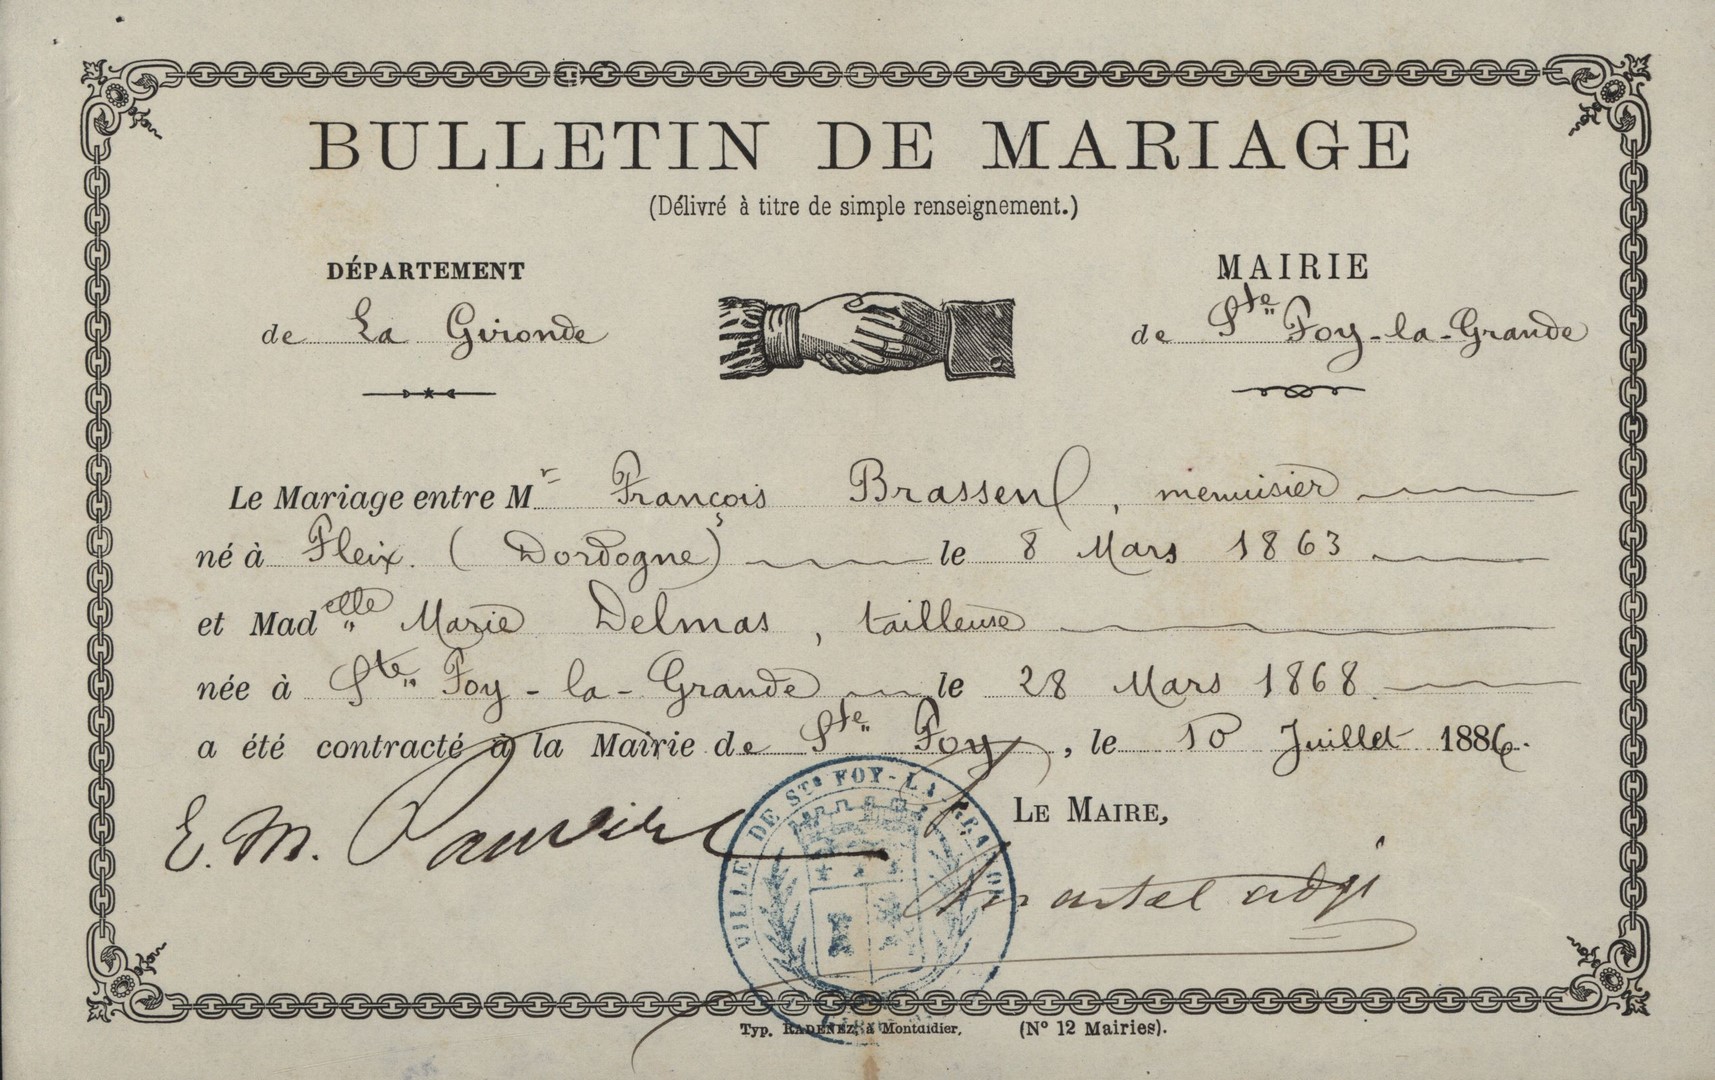 BULLETIN DE MARIAGE
(Délivré à titre de simple renseignement.)
DÉPARTEMENT
de La Gironde
MAIRIE
de Ste Foy-la-Grande
Le Mariage entre Mr François Brassen, menuisier
né à Fleix. (Dordogne) le 8 Mars 1863
et Madelle Marie Delmas, tailleuse
née à Ste Foy-la-Grande le 28 Mars 1868
a été contracté à la Mairie de Ste Foy, le 10 Juillet 1886.
LE MAIRE,
E. M.
Martel adji
VILLE DE STE FOY-LA-GRANDE
Typ. RADENEZ, à Montdidier. (No 12 Mairies).